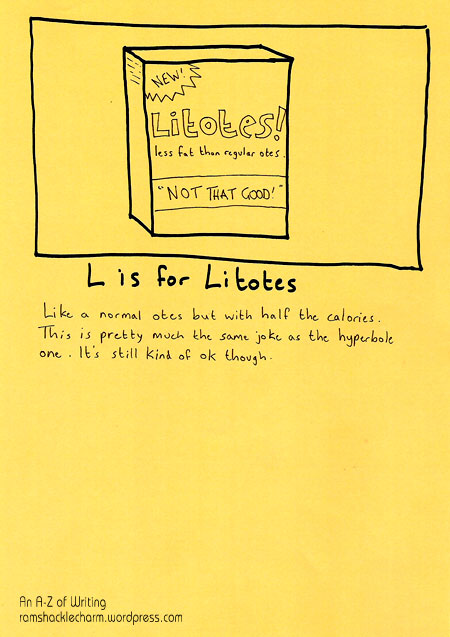 NEW!
Litotes!
less fat than regular otes.
"NOT THAT GOOD!"
L is for Litotes
Like a normal otes but with half the calories.
This is pretty much the same joke as the hyperbole
one. It's still kind of ok though.
An A-Z of Writing
ramshacklecharm.wordpress.com